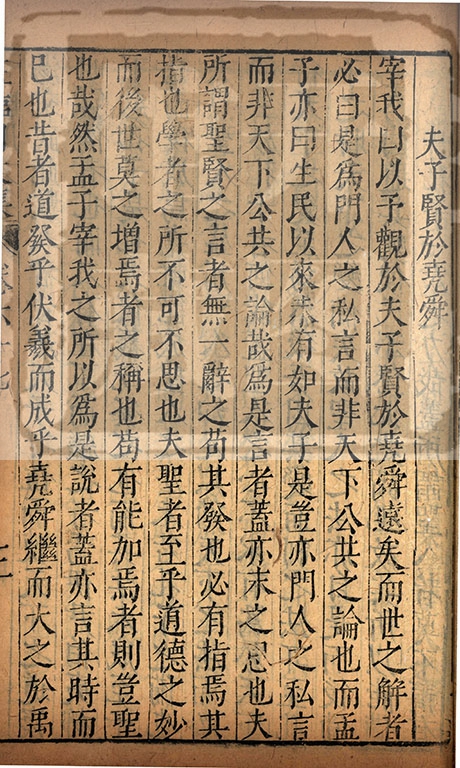 夫子賢於堯舜
宰我曰以予觀於夫子賢於堯舜遠矣而世之解者
必曰是爲門人之私言而非天下公共之論也而孟
子亦曰生民以來未有如夫子是豈亦門人之私言
而非天下公共之論哉爲是言者蓋亦未之思也夫
所謂聖賢之言者無一辭之苟其發也必有指焉其
指也學者之所不可不思也夫聖者至乎道德之妙
而後世莫之增焉者之稱也苟有能加焉者則豈聖
也哉然孟子宰我之所以爲是說者蓋亦言其時而
已也昔者道發乎伏羲而成乎堯舜繼而大之於禹